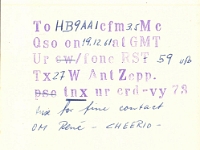 To HB9AAI cfm 3.5 Mc
Qso on 19.12.61 at GMT
Ur cw/fone RST 59
Tx 27 W Ant Zepp.
pse tnx ur crd-vy 73
tnx for fine contact
OM René - CHEERIO -